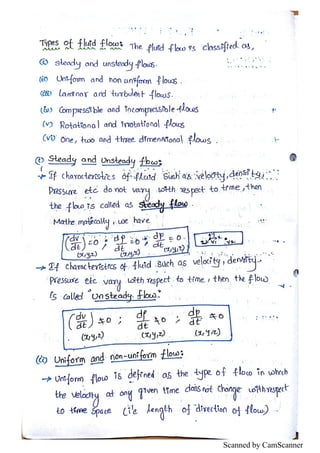 Types of fluid flow: The fluid flow is classified as,
(i) steady and unsteady flows.
(ii) Uniform and non uniform flows.
(iii) Laminar and turbulent flows.
(iv) Compressible and incompressible flows
(v) Rotational and Irrotational flows
(vi) One, two and three dimensional flows.
(i) Steady and Unsteady flow:
→ If characteristics of fluid such as velocity, density,
Pressure etc do not vary with respect to time, then
the flow is called as steady flow.
Mathematically, we have
(dv/dt) = 0 ; dp/dt = 0 ; dp/dt = 0
(x,y,z) (x,y,z) (x,y,z)
→ If characteristics of fluid such as velocity, density
Pressure etc vary with respect to time, then the flow
is called "Unsteady flow."
(dv/dt) ≠ 0 ; dp/dt ≠ 0 ; dp/dt ≠ 0
(x,y,z) (x,y,z) (x,y,z)
(ii) Uniform and non-uniform flow:
→ Uniform flow is defined as the type of flow in which
the velocity at any given time does not change with respect
to space (i.e length of direction of flow)
Scanned by CamScanner